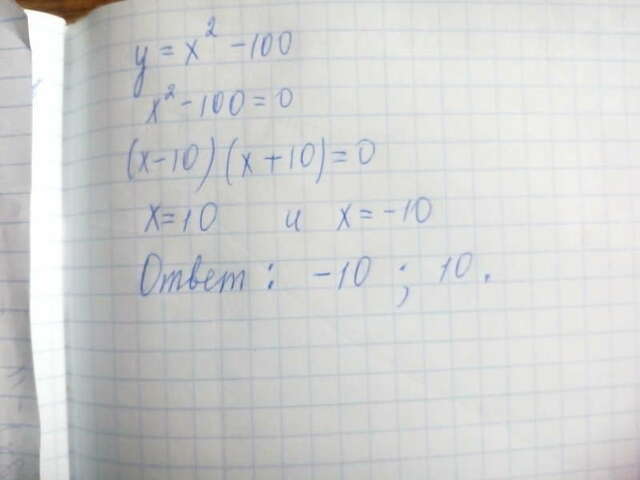 y = x² - 100
x² - 100 = 0
(x - 10) (x + 10) = 0
x = 10 и x = -10
Ответ: -10 ; 10.